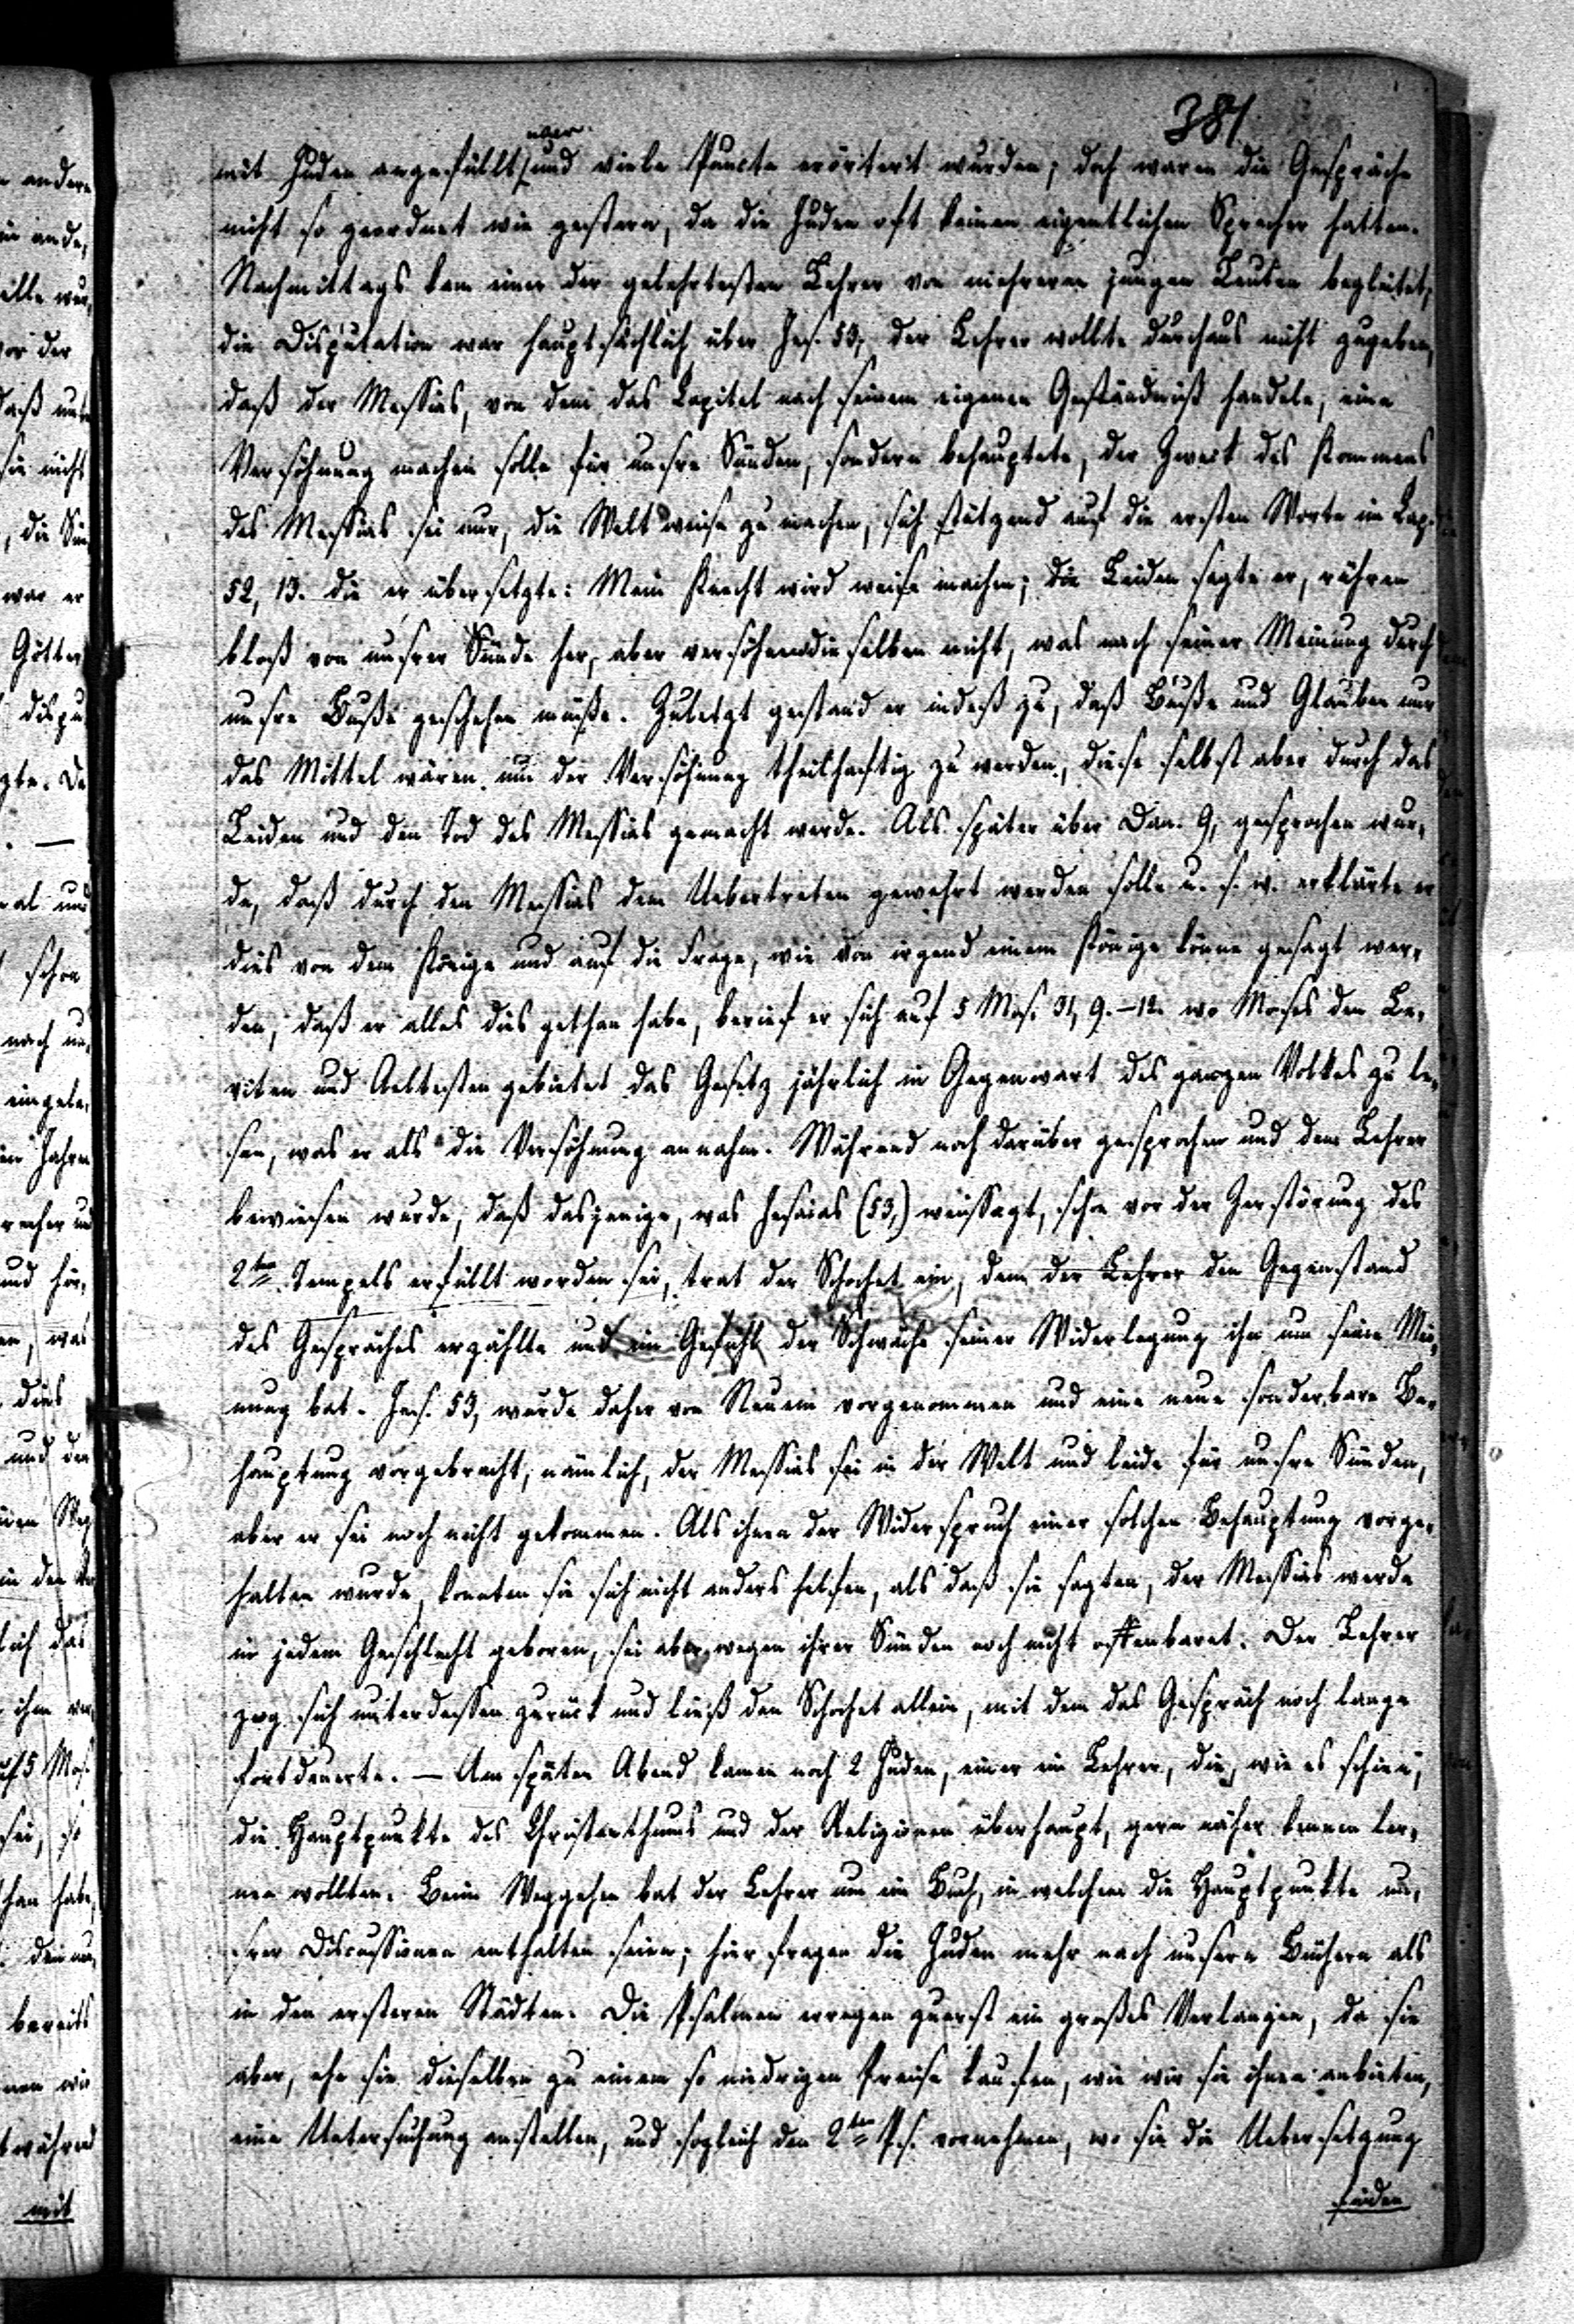 381
mit Juden angefüllt, und viele Puncte erörtert wurden; doch waren die Gespräche
nicht so geordnet wie gestern, da die Juden oft keinen eigentlichen Sprecher hatten.
Nachmittags kam einer der gelehrtesten Lehrer von mehreren jungen Leuten begleitet,
die Disputation war hauptsächlich über Jes. 53, der Lehrer wollte durchaus nicht zugeben,
daß der Messias, von dem das Capitel nach seinem eigenen Geständniß handele, eine
Versöhnung machen solle für unsre Sünden, sondern behauptete, der Zweck des Kommens
des Messias sei nur, die Welt weise zu machen, sich stützend auf die ersten Worte im Cap.
52, 13. die er übersetzte: Mein Knecht wird weise machen; die Leiden sagte er, rühren
bloß von unsrer Sünde her, aber versöhnen dieselben nicht, was nach seiner Meinung durch
unsre Buße geschehen müße. Zuletzt gestand er indeß zu, daß Buße und Glauben nur
das Mittel wären, um der Versöhnung theilhaftig zu werden, diese selbst aber durch das
Leiden und den Tod des Messias gemacht werde. Als später über Dan. 9, gesprochen wur,
de, daß durch den Messias dem Uebertreten gewehrt werden solle u. s. w. erklärte er
dies von dem Könige und auf die Frage, wie von irgend einem Könige könne gesagt wer,
den, daß er alles dies gethan habe, berief er sich auf 5 Mos. 31, 9.–12. wo Moses den Le,
viten und Aeltesten gebietet das Gesetz jährlich in Gegenwart des ganzen Volkes zu le,
sen, was er als die Versöhnung annahm. Während noch darüber gesprochen und dem Lehrer
bewiesen wurde, daß dasjenige, was Jesaias (53,) weissagt, schon vor der Zerstörung des
2ten Tempels erfüllt worden sei, trat der Schochet ein, dem der Lehrer den Gegenstand
des Gespräches erzählte und im Gefühl der Schwäche seiner Widerlegung ihn um seine Mei,
nung bat. Jes. 53, wurde daher von Neuem vorgenommen und eine neue sonderbare Be,
hauptung vorgebracht, nämlich, der Messias sei in der Welt und leide für unsre Sünden,
aber er sei noch nicht gekommen. Als ihnen der Widerspruch einer solchen Behauptung vorge,
halten wurde, konnten sie sich nicht anders helfen, als daß sie sagten, der Messias werde
in jedem Geschlecht geboren, sei aber wegen ihrer Sünden noch nicht offenbaret. Der Lehrer
zog sich unterdessen zurück und ließ den Schochet allein, mit dem das Gespräch noch lange
fortdauerte. — Am späten Abend kamen noch 2 Juden, einer ein Lehrer, die, wie es schien,
die Hauptpunkte des Christenthums und der Religionen überhaupt, gern näher kennen ler,
nen wollten. Beim Weggehen bat der Lehrer um ein Buch, in welchem die Hauptpunkte un,
srer Discussionen enthalten seien; hier fragen die Juden mehr nach unsern Büchern als
in den ersteren Städten. Die Psalmen erregen zuerst ein großes Verlangen, da sie
aber, ehe sie dieselben zu einem so niedrigen Preise kaufen, wie wir sie ihnen anbieten,
eine Untersuchung anstellen, und sogleich den 2ten Ps. vornehmen, wo sie die Uebersetzung
finden